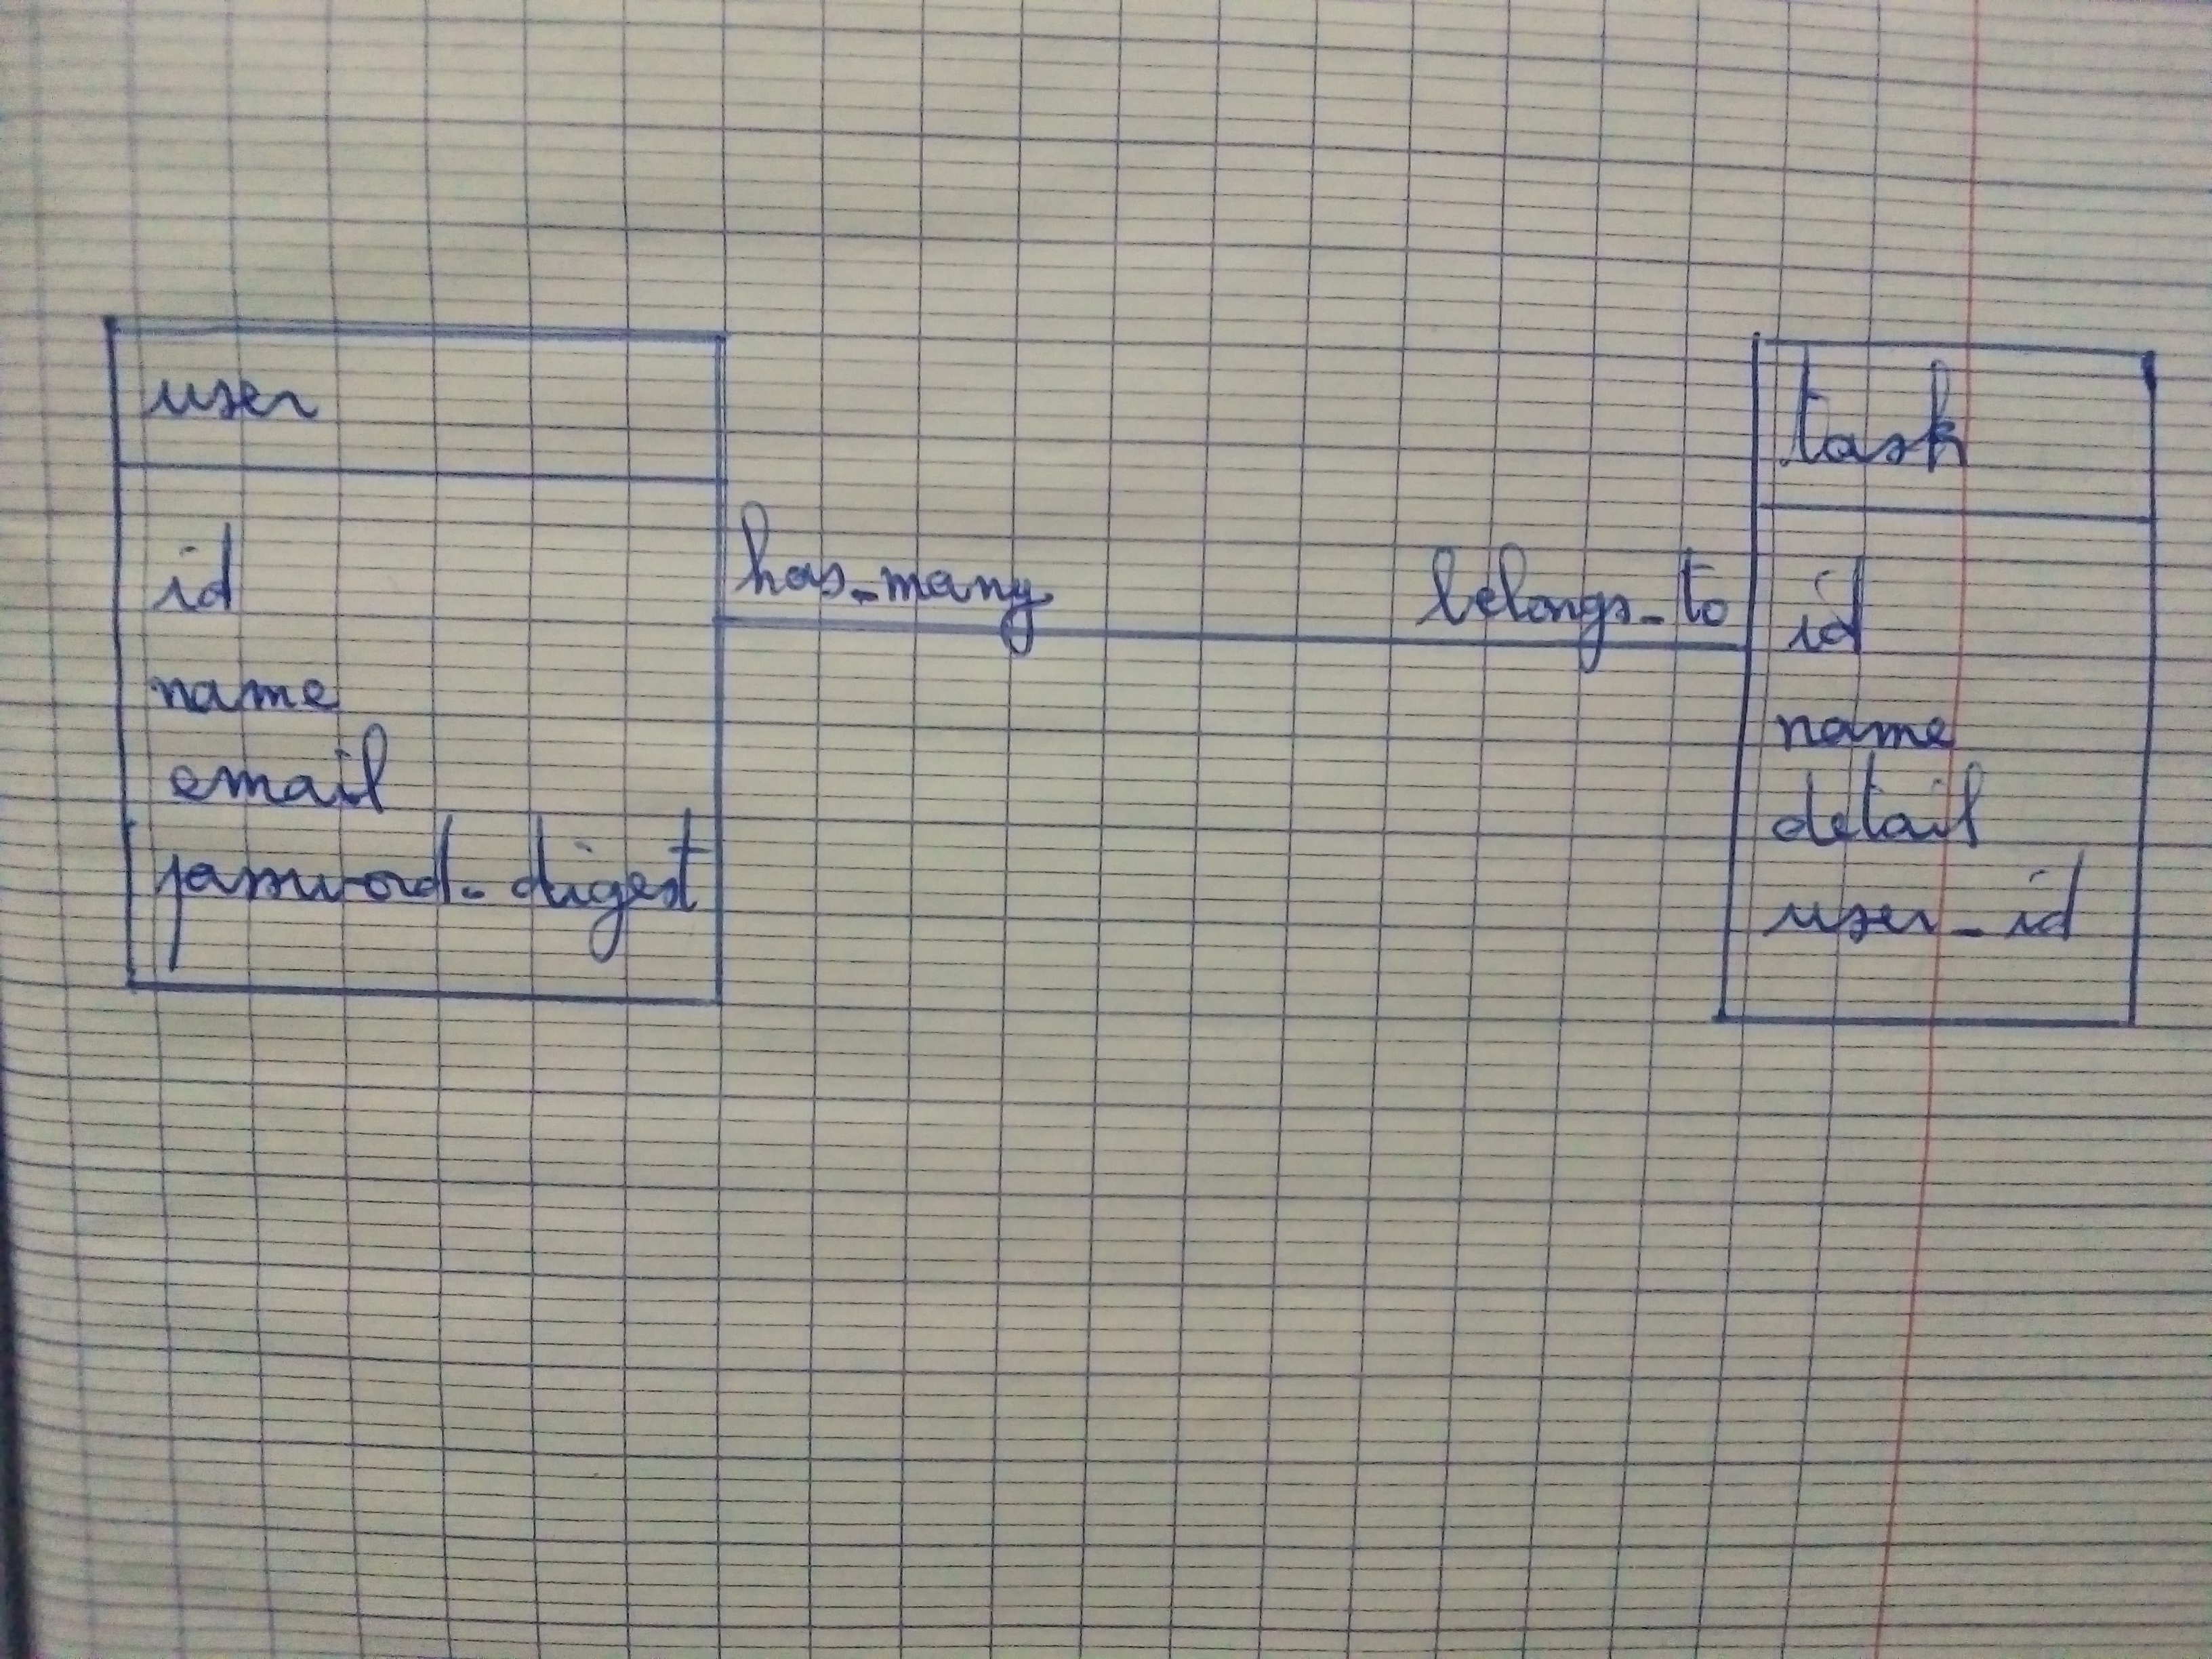 user
id
name
email
password_digest
has_many
belongs_to
task
id
name
detail
user_id